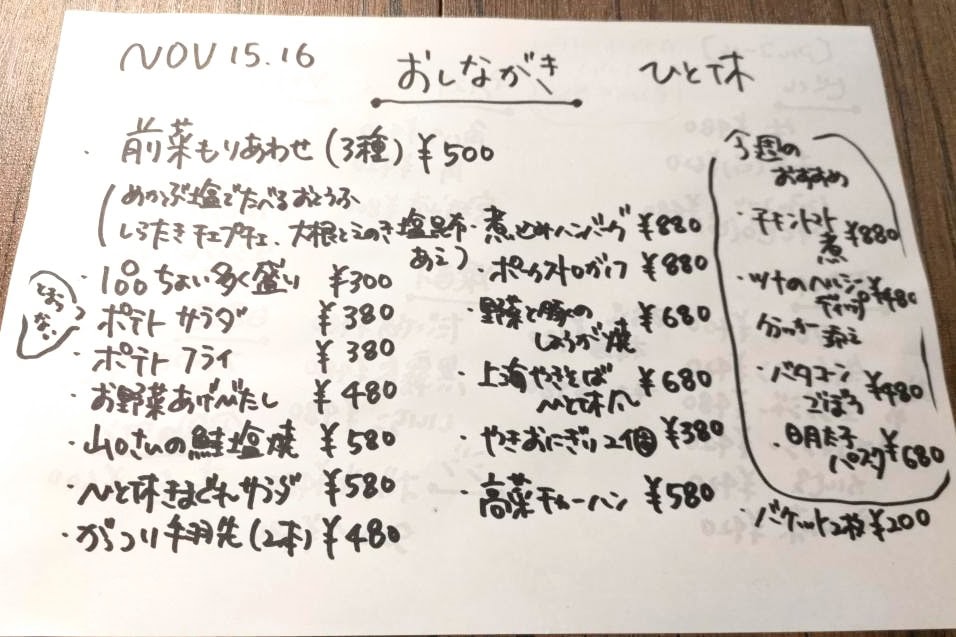 NOV 15.16
おしながき ひと休
・前菜もりあわせ(3種) ¥500
(めかぶ塩でたべるおとうふ
しらたきチャプチェ、大根とえのき塩昆布
あえ)
・1品ちょい多く盛り ¥300
とおつな
・ポテトサラダ ¥380
・ポテトフライ ¥380
・お野菜あげびたし ¥480
・山口さんの鮭塩焼 ¥580
・ひと休きまぐれサラダ ¥580
・がっつり手羽先(2本) ¥480
・煮込みハンバーグ ¥880
・ポークストロガノフ ¥880
・野菜と豚の
しょうが焼 ¥680
・上海やきそば
ひと休 ¥680
・やきおにぎり2個 ¥380
・高菜チャーハン ¥580
今週の
おすすめ
・チキントマト
煮 ¥880
・ツナのヘルシー
ディップ ¥480
クラッカー添え
・バタコーン
ごぼう ¥480
・明太子
パスタ ¥680
・バケット2枚 ¥200